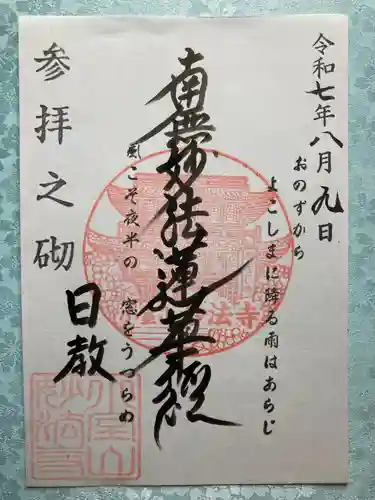 令和七年八月九日
おのずから
よこしまに降る雨はあらじ
南無妙法蓮華経
風こそ夜半の
窓をうつらめ
参拝之砌
日教
法寺